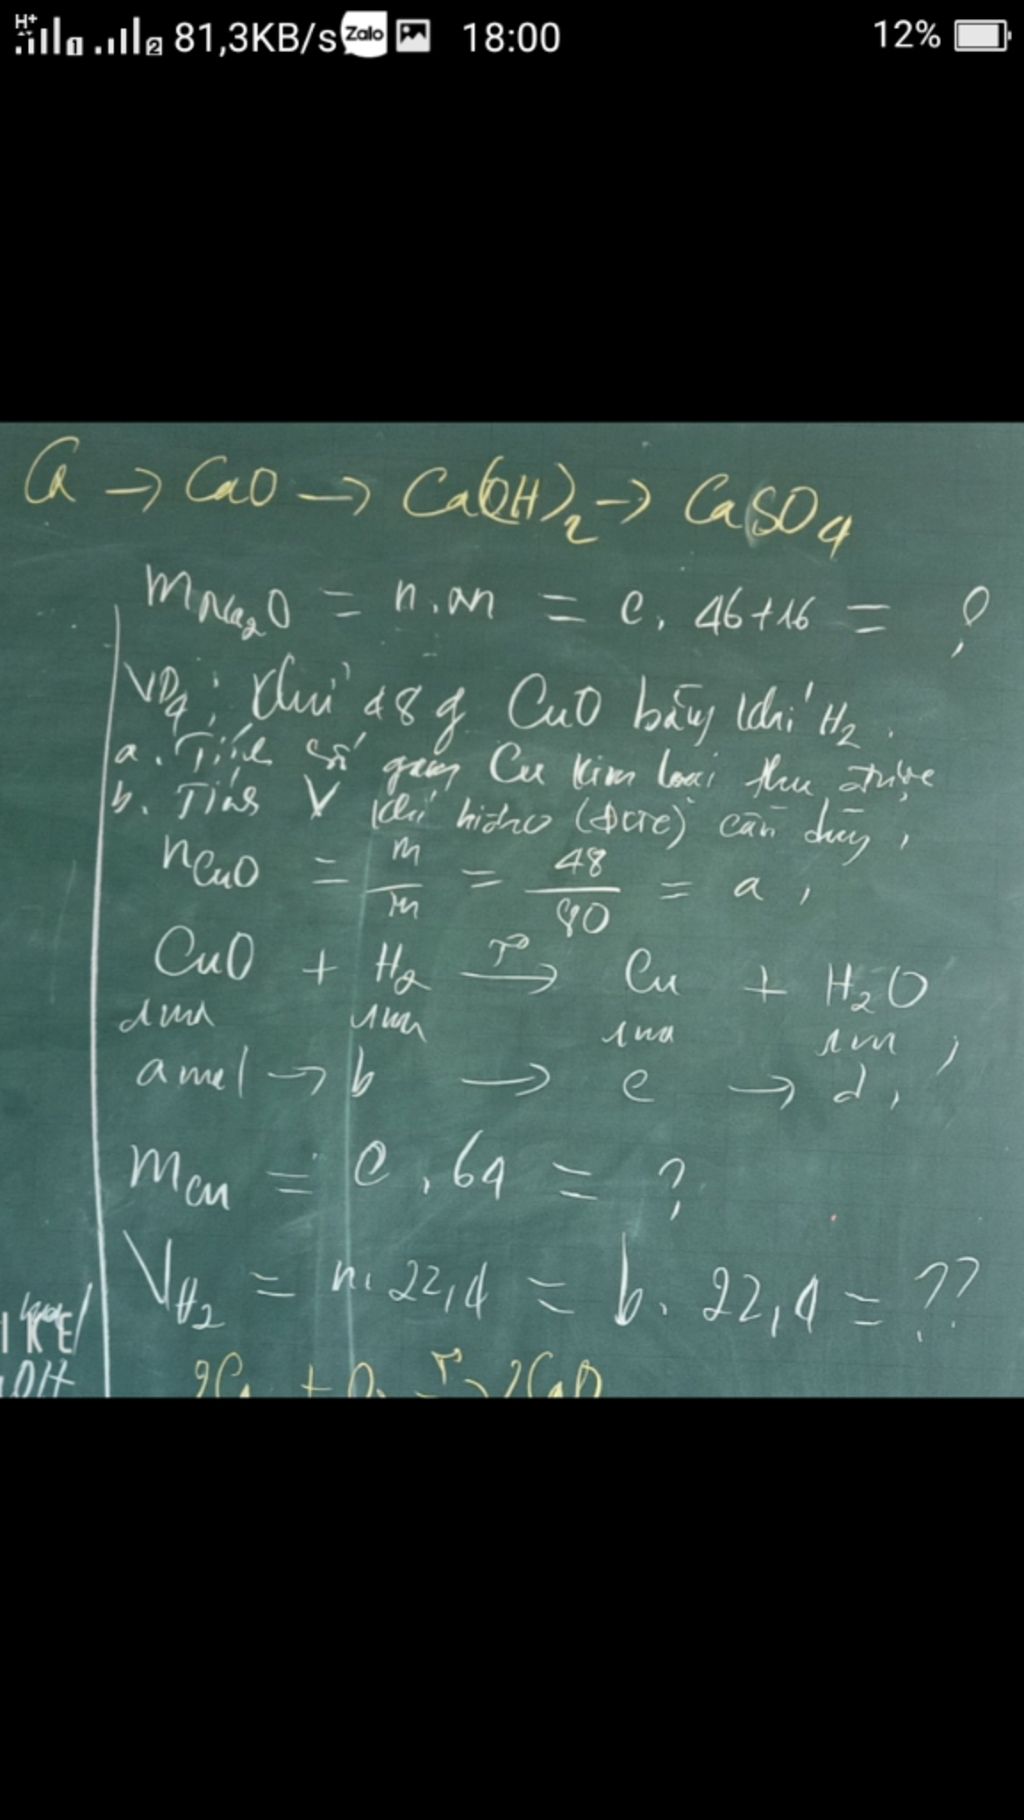 H+ 1 2 81,3KB/s Zalo 18:00 12%
Ca → CaO → Ca(OH)₂ → CaSO₄
mNa₂O = n.m = c. 46+16 = ?
VD4: Khử 48g CuO bằng khí H₂.
a. Tính số gam Cu kim loại thu được
b. Tính V khí hiđro (ĐCTC) cần dùng,
nCuO = m/m = 48/80 = a,
CuO + H₂ —T°→ Cu + H₂O
1mol 1mol 1mol 1mol,
a mol → b → c → d,
mCu = c.64 = ?
VH₂ = n.22,4 = b. 22,4 = ??
2Ca + O₂ —T°→ 2CaO